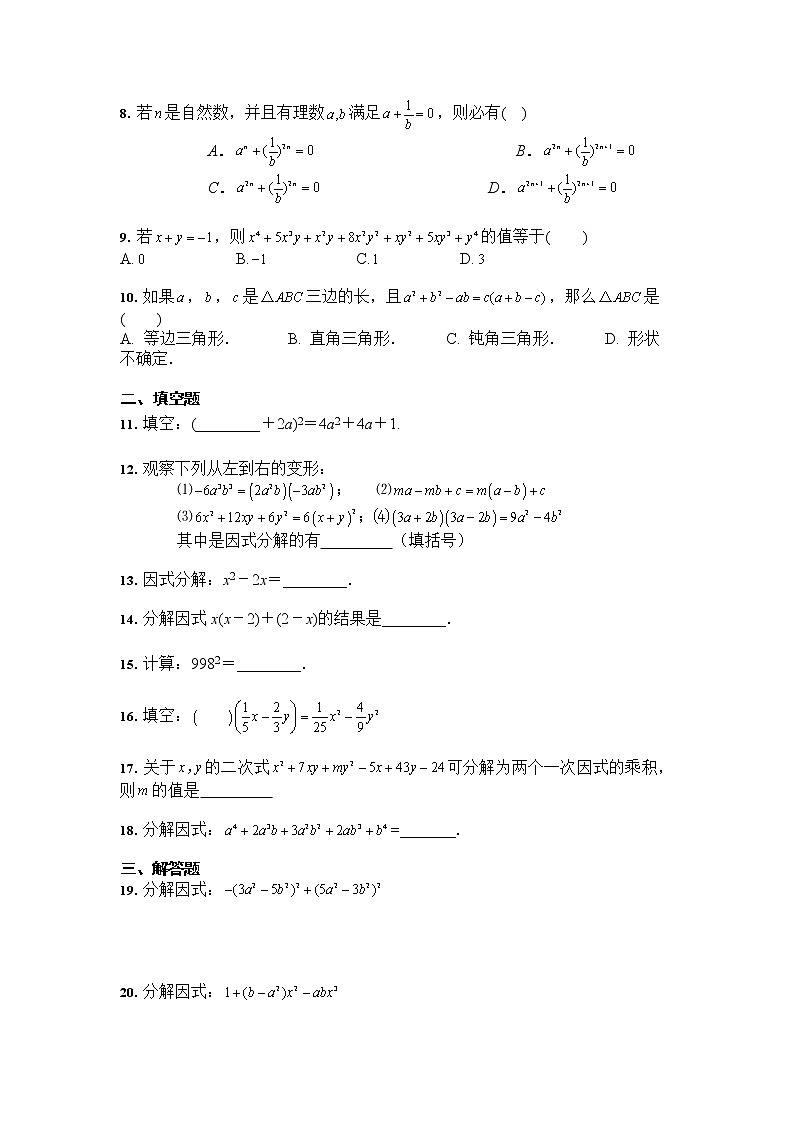 8. 若n是自然数，并且有理数a,b满足a+1/b=0，则必有(　)
A．aⁿ+(1/b)²ⁿ=0　B．a²ⁿ+(1/b)²ⁿ⁺¹=0
C．a²ⁿ+(1/b)²ⁿ=0　D．a²ⁿ⁺¹+(1/b)²ⁿ⁺¹=0
9. 若x+y=−1，则x⁴+5x³y+x²y+8x²y²+xy²+5xy³+y⁴的值等于(　　)
A. 0　B. −1　C. 1　D. 3
10. 如果a，b，c是△ABC三边的长，且a²+b²−ab=c(a+b−c)，那么△ABC是
(　　)
A. 等边三角形.　B. 直角三角形.　C. 钝角三角形.　D. 形状
不确定.
二、填空题
11. 填空：(________＋2a)²＝4a²＋4a＋1.
12. 观察下列从左到右的变形：
⑴−6a³b³=(2a²b)(−3ab²)；　⑵ma−mb+c=m(a−b)+c
⑶6x²+12xy+6y²=6(x+y)²；⑷(3a+2b)(3a−2b)=9a²−4b²
其中是因式分解的有_________（填括号）
13. 因式分解：x²－2x＝________.
14. 分解因式 x(x－2)＋(2－x)的结果是________.
15. 计算：998²＝________.
16. 填空：(　　)(1/5x−2/3y)=1/25x²−4/9y²
17. 关于x,y的二次式x²+7xy+my²−5x+43y−24可分解为两个一次因式的乘积，
则m的值是_________
18. 分解因式：a⁴+2a³b+3a²b²+2ab³+b⁴=_______.
三、解答题
19. 分解因式：−(3a²−5b²)²+(5a²−3b²)²
20. 分解因式：1+(b−a²)x²−abx³